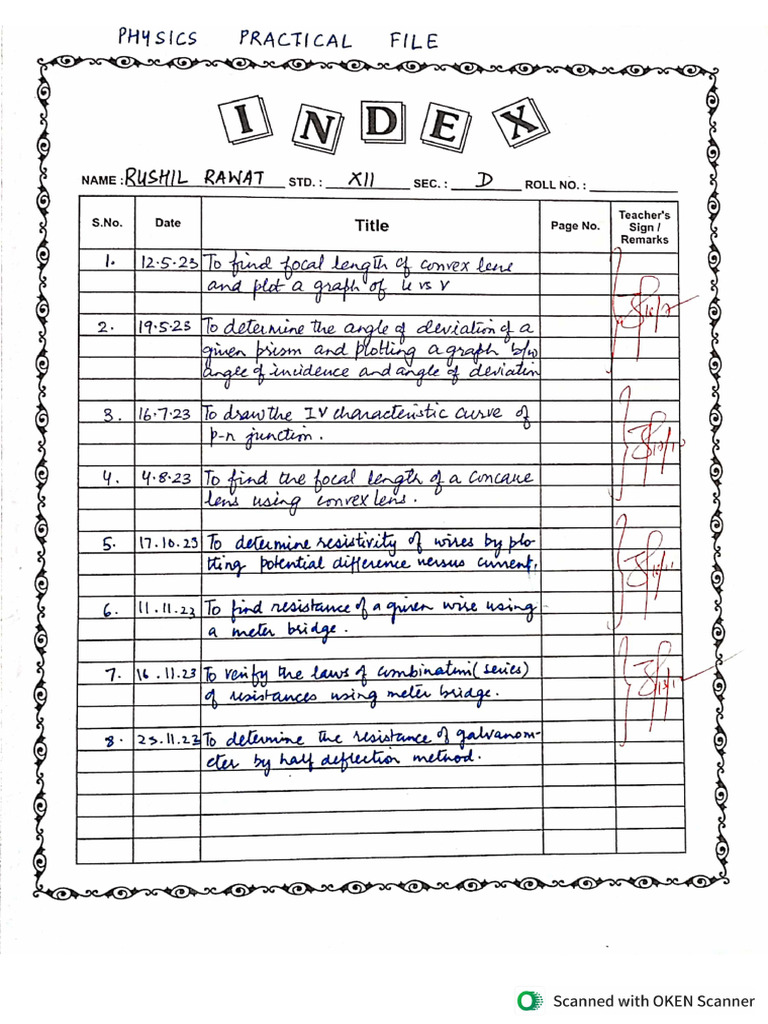 PHYSICS PRACTICAL FILE
INDEX
NAME : RUSHIL RAWAT STD. : XII SEC. : D ROLL NO. :
S.No. Date Title Page No. Teacher's Sign / Remarks
1. 12.5.23 To find focal length of convex lens
and plot a graph of u vs v
2. 19.5.23 To determine the angle of deviation of a
given prism and plotting a graph b/w
angle of incidence and angle of deviation
3. 16.7.23 To draw the IV characteristic curve of
p-n junction.
4. 4.8.23 To find the focal length of a concave
lens using convex lens.
5. 17.10.23 To determine resistivity of wires by plo-
tting potential difference versus current.
6. 11.11.23 To find resistance of a given wire using
a meter bridge.
7. 16.11.23 To verify the laws of combination (series)
of resistances using meter bridge.
8. 23.11.23 To determine the resistance of galvanom-
eter by half deflection method.
Scanned with OKEN Scanner